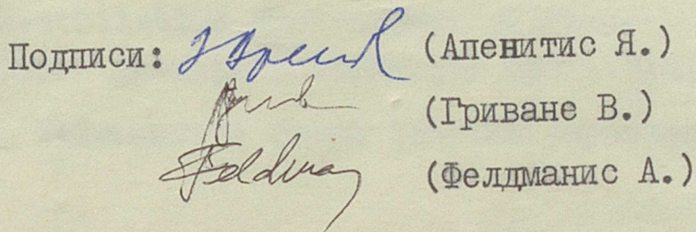 Подписи: (Апенитис Я.)
(Гриване В.)
Feldman (Фелдманис А.)